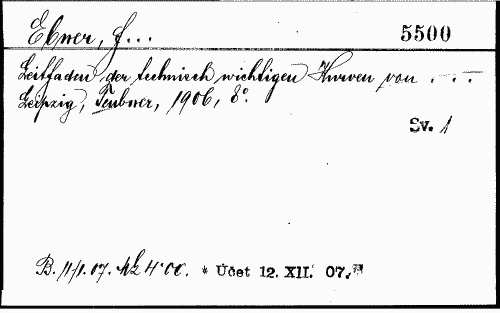 Ebner, F... 5500
Leitfaden der technisch wichtigen Kurven von . ...
Leipzig, Teubner, 1906, 8°.
Sv. 1
B. 11/1. 07. Mk 4·00. * Účet 12. XII. 07.